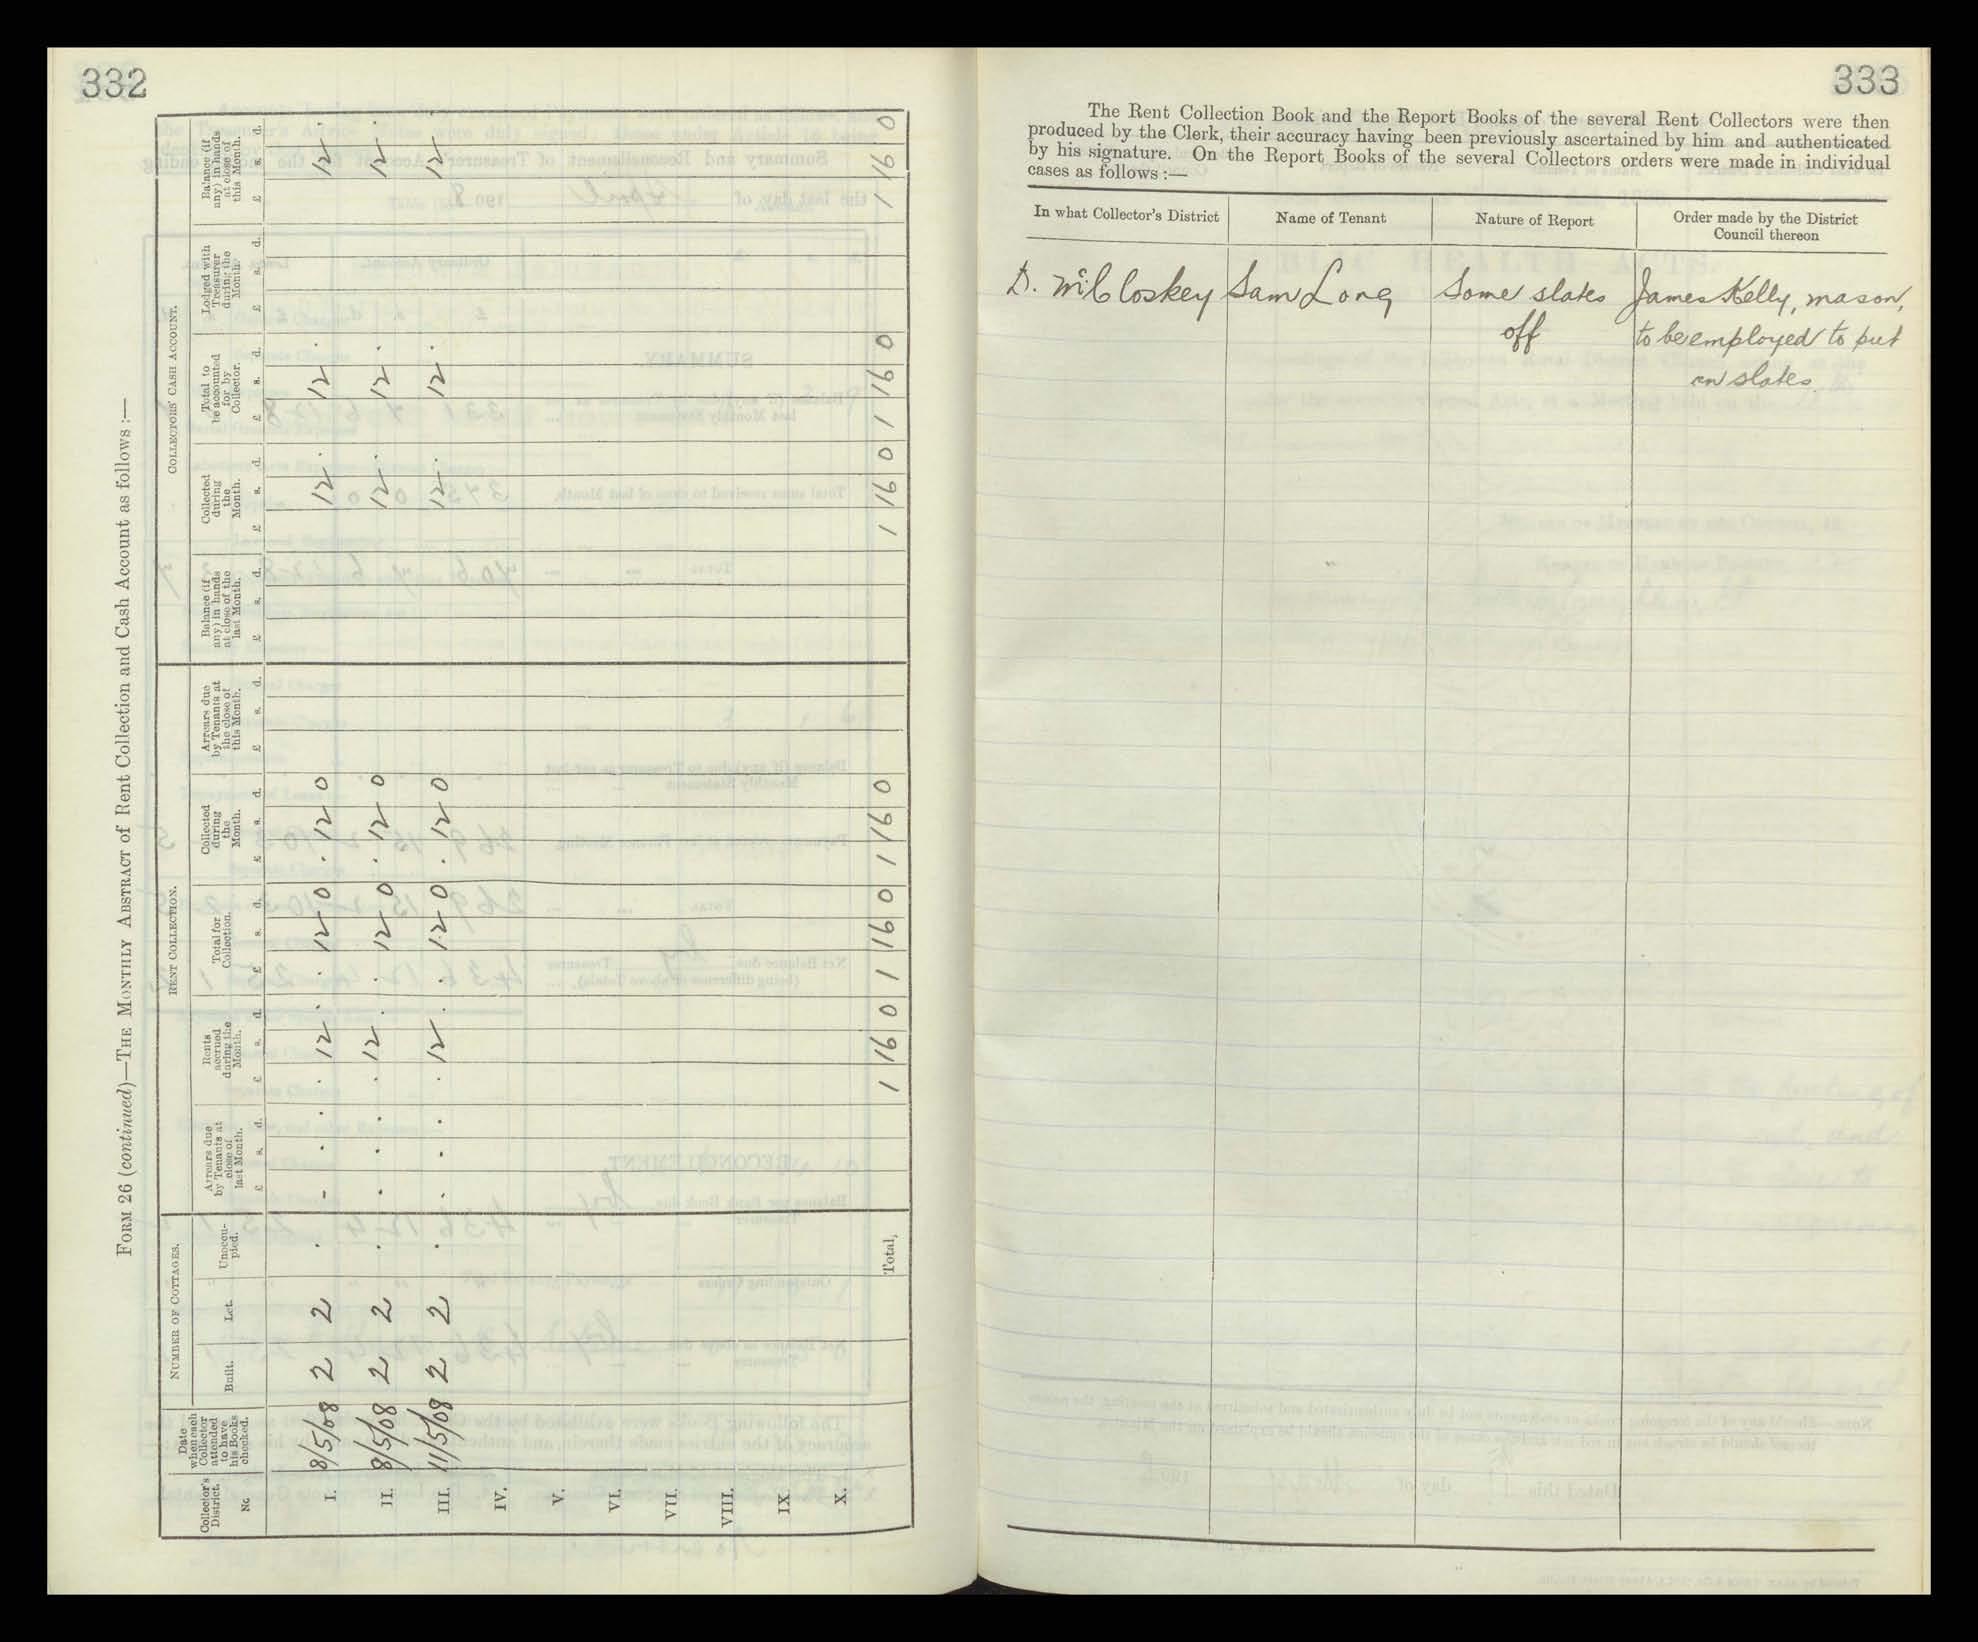 332
FORM 26 (continued)—THE MONTHLY ABSTRACT of Rent Collection and Cash Account as follows :—
Collector's District. | Date when each Collector attended to have his Books checked. | NUMBER OF COTTAGES. | RENT COLLECTION. | COLLECTORS' CASH ACCOUNT.
No | Built. | Let. | Unoccupied. | Arrears due by Tenants at close of last Month. | Rents accrued during the Month. | Total for Collection. | Collected during the Month. | Arrears due by Tenants at the close of this Month. | Balance (if any) in hands at close of the last Month. | Collected during the Month. | Total to be accounted for by Collector. | Lodged with Treasurer during the Month. | Balance (if any) in hands at close of this Month.
£ s. d. | £ s. d. | £ s. d. | £ s. d. | £ s. d. | £ s. d. | £ s. d. | £ s. d. | £ s. d. | £ s. d.
I. | 8/5/08 | 2 | 2 | . | - . . | . 12 . | . 12 0 | . 12 0 | | | 12 . | 12 . | | 12 .
II. | 8/5/08 | 2 | 2 | . | . . . | . 12 . | . 12 0 | . 12 0 | | | 12 . | 12 . | | 12 .
III. | 11/5/08 | 2 | 2 | . | . . . | . 12 . | . 12 0 | . 12 0 | | | 12 . | 12 . | | 12 .
IV.
V.
VI.
VII.
VIII.
IX
X.
Total, | 1 16 0 | 1 16 0 | 1 16 0 | | | 1 16 0 | 1 16 0 | | 1 16 0
333
The Rent Collection Book and the Report Books of the several Rent Collectors were then
produced by the Clerk, their accuracy having been previously ascertained by him and authenticated
by his signature. On the Report Books of the several Collectors orders were made in individual
cases as follows :—
In what Collector's District | Name of Tenant | Nature of Report | Order made by the District
Council thereon
D. McCloskey | Sam Long | Some slates | James Kelly, mason,
off | to be employed to put
on slates.